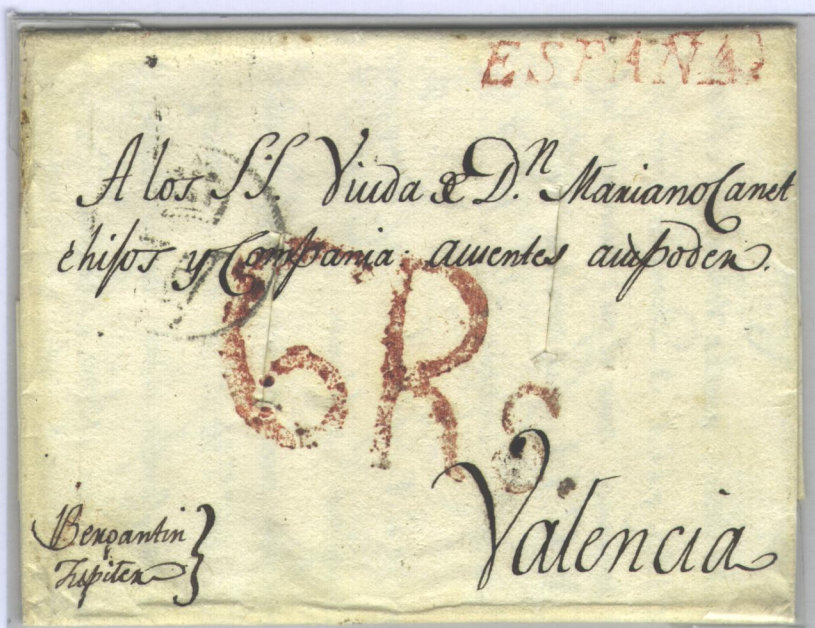 ESPAÑA.
A los SS. Viuda de D.n Mariano Canet
è hijos y Compania ausentes asupoder.
6Rs
Valencia
Bergantin
Jupiter